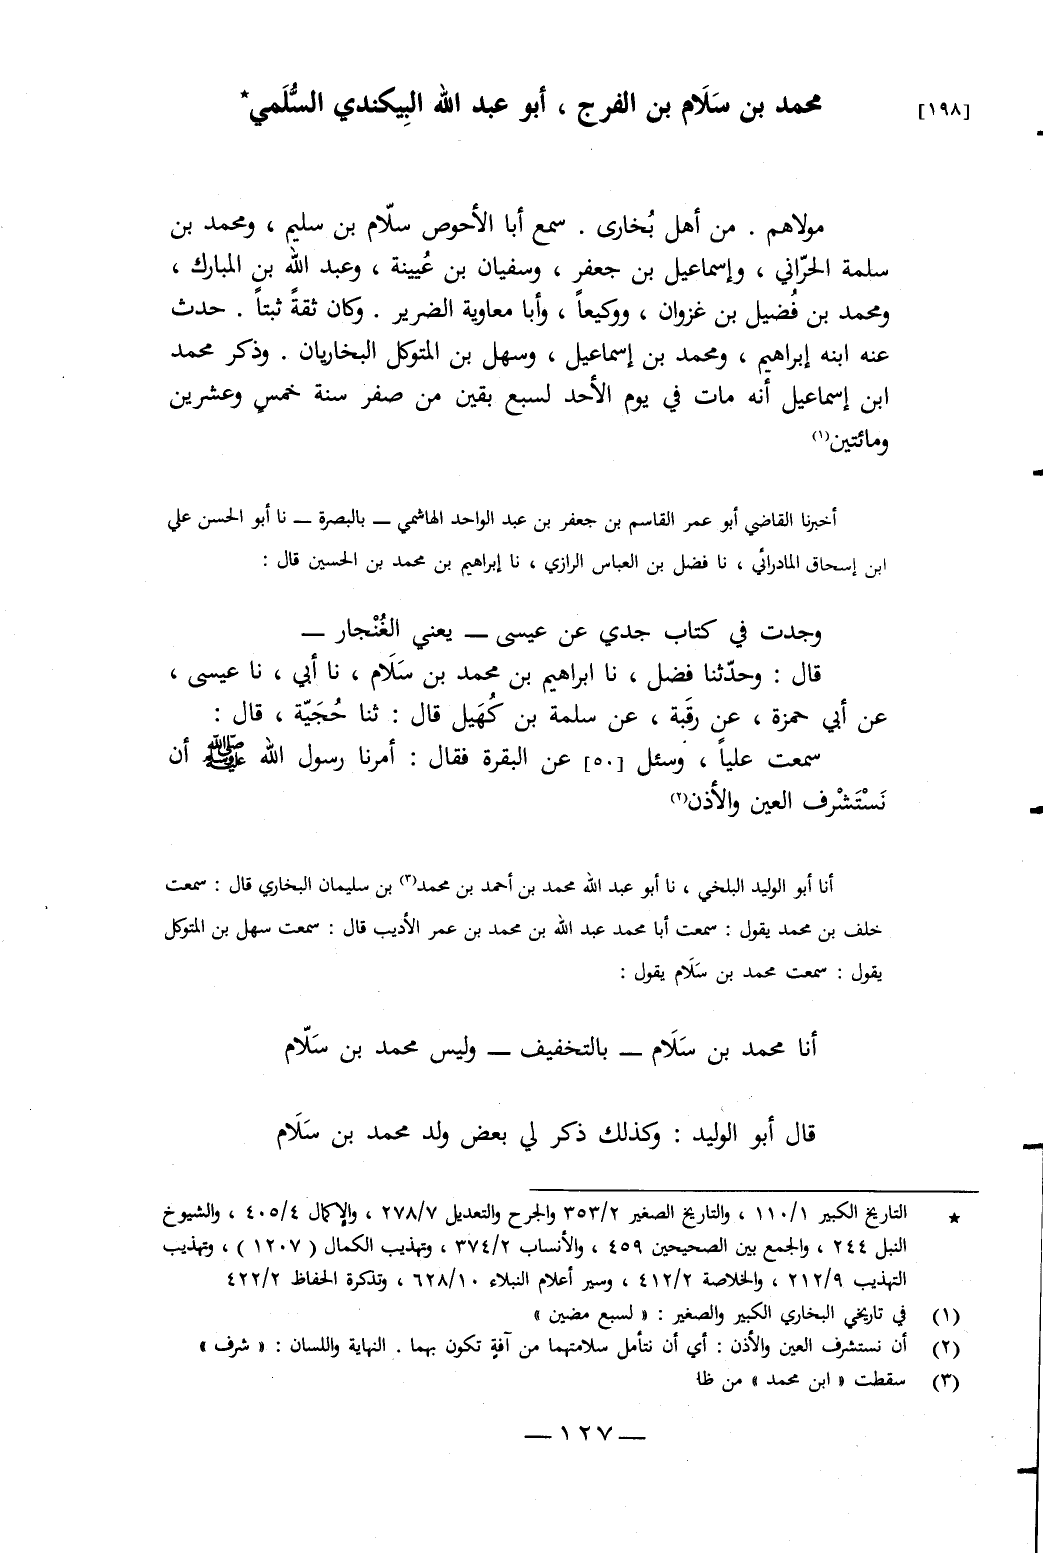 [١٩٨] محمد بن سَلَام بن الفرج ، أبو عبد الله البِيكندي السُّلَمي*
مولاهم . من أهل بُخارى . سمع أبا الأحوص سلّام بن سليم ، ومحمد بن
سلمة الحرّاني ، وإسماعيل بن جعفر ، وسفيان بن عُيينة ، وعبد الله بن المبارك ،
ومحمد بن فُضيل بن غزوان ، ووكيعاً ، وأبا معاوية الضرير . وكان ثقةً ثبتاً . حدث
عنه ابنه إبراهيم ، ومحمد بن إسماعيل ، وسهل بن المتوكل البخاريان . وذكر محمد
ابن إسماعيل أنه مات في يوم الأحد لسبع بقين من صفر سنة خمسٍ وعشرين
ومائتين(١)
أخبرنا القاضي أبو عمر القاسم بن جعفر بن عبد الواحد الهاشمي — بالبصرة — نا أبو الحسن علي
ابن إسحاق المادرائي ، نا فضل بن العباس الرازي ، نا إبراهيم بن محمد بن الحسين قال :
وجدت في كتاب جدي عن عيسى — يعني الغُنْجار —
قال : وحدّثنا فضل ، نا ابراهيم بن محمد بن سَلَام ، نا أبي ، نا عيسى ،
عن أبي حمزة ، عن رقَبة ، عن سلمة بن كُهَيل قال : ثنا حُجَيّة ، قال :
سمعت علياً ، وسئل [٥٠] عن البقرة فقال : أمرنا رسول الله ﷺ أن
نَسْتَشْرف العين والأذن(٢)
أنا أبو الوليد البلخي ، نا أبو عبد الله محمد بن أحمد بن محمد(٣) بن سليمان البخاري قال : سمعت
خلف بن محمد يقول : سمعت أبا محمد عبد الله بن محمد بن عمر الأديب قال : سمعت سهل بن المتوكل
يقول : سمعت محمد بن سَلَام يقول :
أنا محمد بن سَلَام — بالتخفيف — وليس محمد بن سَلّام
قال أبو الوليد : وكذلك ذكر لي بعض ولد محمد بن سَلَام
★ التاريخ الكبير ١١٠/١ ، والتاريخ الصغير ٣٥٣/٢ والجرح والتعديل ٢٧٨/٧ ، والإكمال ٤٠٥/٤ ، والشيوخ
النبل ٢٤٤ ، والجمع بين الصحيحين ٤٥٩ ، والأنساب ٣٧٤/٢ ، وتهذيب الكمال ( ١٢٠٧ ) ، وتهذيب
التهذيب ٢١٢/٩ ، والخلاصة ٤١٢/٢ ، وسير أعلام النبلاء ٦٢٨/١٠ ، وتذكرة الحفاظ ٤٢٢/٢
(١) في تاريخي البخاري الكبير والصغير : « لسبع مضين »
(٢) أن نستشرف العين والأذن : أي أن نتأمل سلامتهما من آفةٍ تكون بهما . النهاية واللسان : « شرف »
(٣) سقطت « ابن محمد » من ظا
— ١٢٧ —